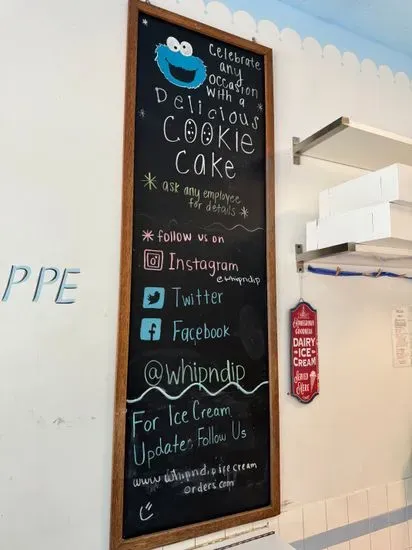 Celebrate
any
occasion
with a
Delicious
COOKIE
Cake
* ask any employee
for details *
* follow us on
Instagram
@whipndip
Twitter
Facebook
@whipndip
For Ice Cream
Update: Follow Us
www.whipndipicecream
orders.com
PPE
HOMEMADE
GOODNESS
DAIRY
ICE
CREAM
SERVED
HERE